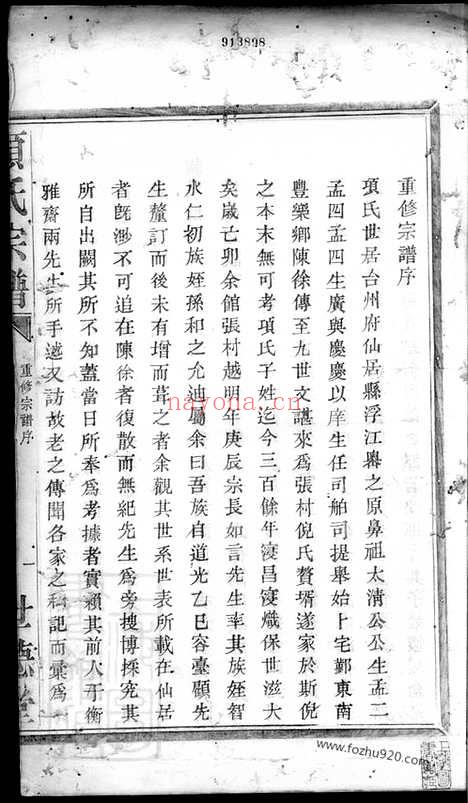 913898
重修宗譜序
項氏世居台州府仙居縣浮江粵之原鼻祖太清公公生孟二
孟四孟四生廣與慶慶以庠生任司舶司提舉始卜宅鄞東南
豐樂鄉陳徐傳至九世文諶來爲張村倪氏贅壻遂家於斯倪
之本末無可考項氏子姓迄今三百餘年寖昌寖熾保世滋大
矣歲己卯余館張村越明年庚辰宗長如言先生率其族姪智
水仁初族姪孫和之允迪屬余曰吾族自道光乙巳容臺顧先
生釐訂而後未有增而葺之者余觀其世系世表所載在仙居
者旣渺不可追在陳徐者復散而無紀先生爲旁搜博採究其
所自出闕其所不知蓋當日所奉爲考據者實賴其前人于衡
雅齋兩先生所手述又訪故老之傳聞各家之私記而彙爲
項氏宗譜
重修宗譜序
一
世德堂
nayona.cn
https://www.fozhu920.com/